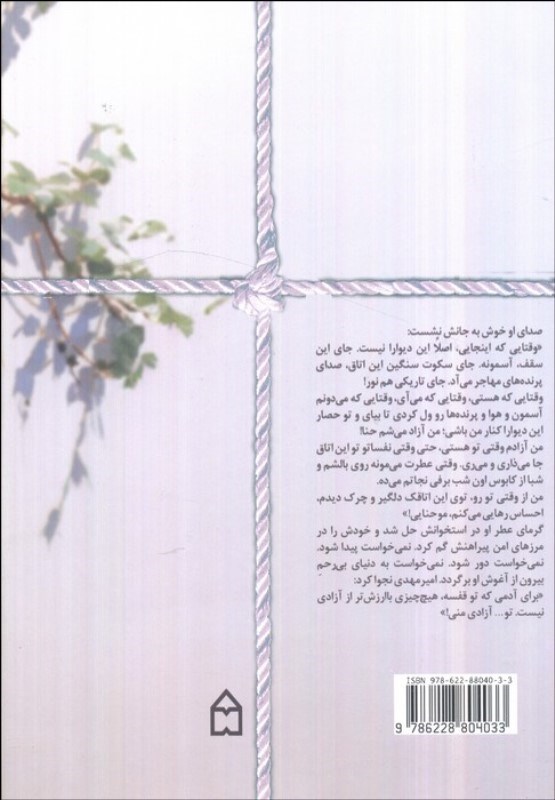 صدای او خوش به جانش نشست:
«وقتایی که اینجایی، اصلاً این دیوارا نیست. جای این
سقف، آسمونه. جای سکوت سنگین این اتاق، صدای
پرنده‌های مهاجر می‌آد. جای تاریکی هم نور!
وقتایی که هستی، وقتایی که می‌آی، وقتایی که می‌دونم
آسمون و هوا و پرنده‌ها رو ول کردی تا بیای و تو حصار
این دیوارا کنار من باشی؛ من آزاد می‌شم حنا!
من آزادم وقتی تو هستی، حتی وقتی نفساتو تو این اتاق
جا می‌ذاری و می‌ری. وقتی عطرت می‌مونه روی بالشم و
شبا از کابوس اون شب برفی نجاتم می‌ده.
من از وقتی تو رو، توی این اتاقک دلگیر و چرک دیدم،
احساس رهایی می‌کنم، موحنایی!»
گرمای عطر او در استخوانش حل شد و خودش را در
مرزهای امن پیراهنش گم کرد. نمی‌خواست پیدا شود.
نمی‌خواست دور شود. نمی‌خواست به دنیای بی‌رحمِ
بیرون از آغوش او برگردد. امیرمهدی نجوا کرد:
«برای آدمی که تو قفسه، هیچ‌چیزی باارزش‌تر از آزادی
نیست. تو... آزادی منی!»
ISBN 978-622-88040-3-3
9 786228 804033